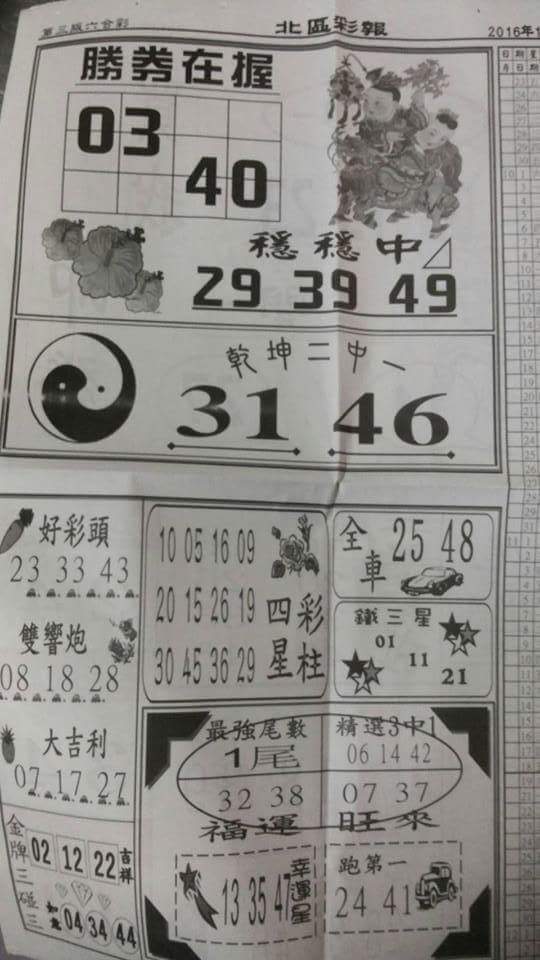 第三版六合彩
北區彩報
2016年1
勝券在握
03
40
穩穩中
29 39 49
乾坤二中一
31 46
好彩頭
23 33 43
雙響炮
08 18 28
大吉利
07 17 27
金牌三碰三
02 12 22 吉祥
04 34 44
10 05 16 09
20 15 26 19
30 45 36 29
四星彩柱
全車
25 48
鐵三星
01
11
21
最強尾數
1尾
32 38
精選3中1
06 14 42
07 37
福運旺來
13 35 4
幸運星
跑第一
24 41